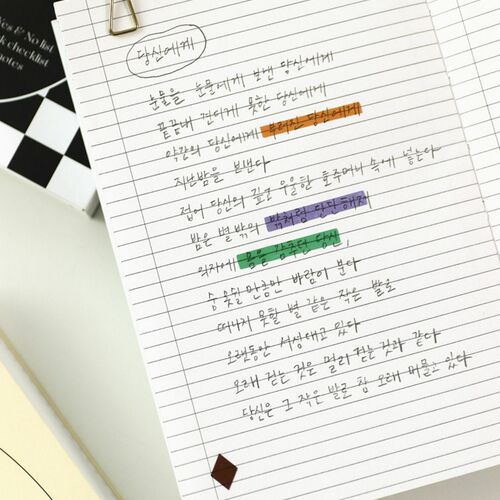 Yes & No list
checklist
notes
당신에게
눈물을 눈물에게 보낸 당신에게
끝끝내 견디게 못한 당신에게
약간의 당신에게 부러진 당신에게
지난밤을 보낸다
접어 당신의 깊고 우울한 호주머니 속에 넣는다
밤은 별 밖의 밤처럼 단단해져
의자에 몸을 감추던 당신,
숨 못쉴 만큼만 바람이 분다
떠나지 못할 별 같은 작은 발로
오랫동안 서성대고 있다
오래 걷는 것은 멀리 걷는 것과 같다
당신은 그 작은 발로 참 오래 머물고 있다